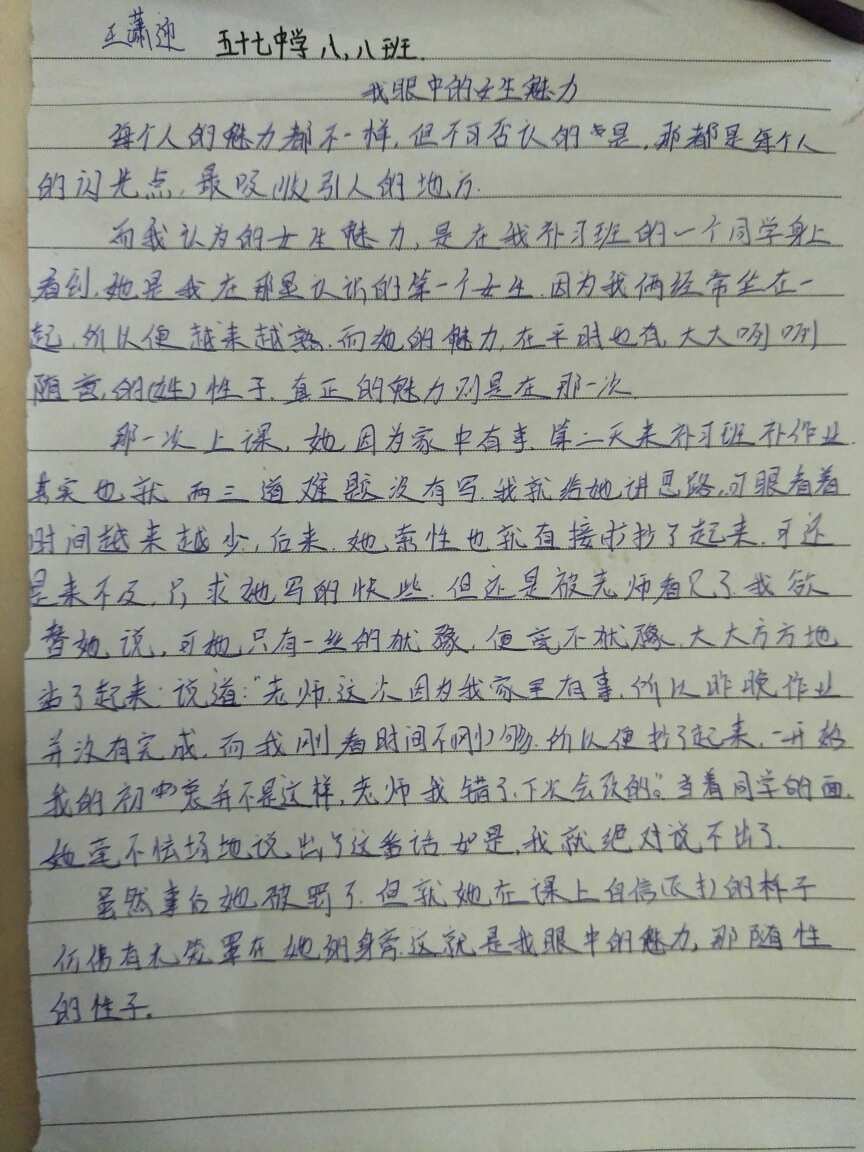 王萧迎 五十七中学八,八班.
我眼中的女生魅力
每个人的魅力都不一样,但不可否认的是,那都是每个人
的闪光点,最吸引人的地方.
而我认为的女生魅力,是在我补习班的一个同学身上
看到,她是我在那里认识的第一个女生.因为我俩经常坐在一
起,所以便越来越熟.而她的魅力,在平时也有,大大咧咧
随意,的(姓)性子.真正的魅力则是在那一次
那一次上课,她因为家中有事.第二天来补习班补作业.
其实也就两三道难题没有写.我就给她讲思路,可眼看着
时间越来越少,后来.她索性也就直接抄了起来.可还
是来不及,只求她写的快些.但还是被老师看见了.我欲
替她说,可她只有一丝的犹豫,便毫不犹豫,大大方方地
当了起来:说道:“老师.这次因为我家里有事,所以昨晚作业
并没有完成,而我刚看时间不够.所以便抄了起来,一开始
我的初衷并不是这样,老师我错了.下次会改的。”当着同学的面.
她毫不怯场地说出了这番话如是,我就绝对说不出了.
虽然事后她被罚了.但就她在课上自信的样子
仿佛有光笼罩在她的身旁.这就是我眼中的魅力,那随性
的性子.